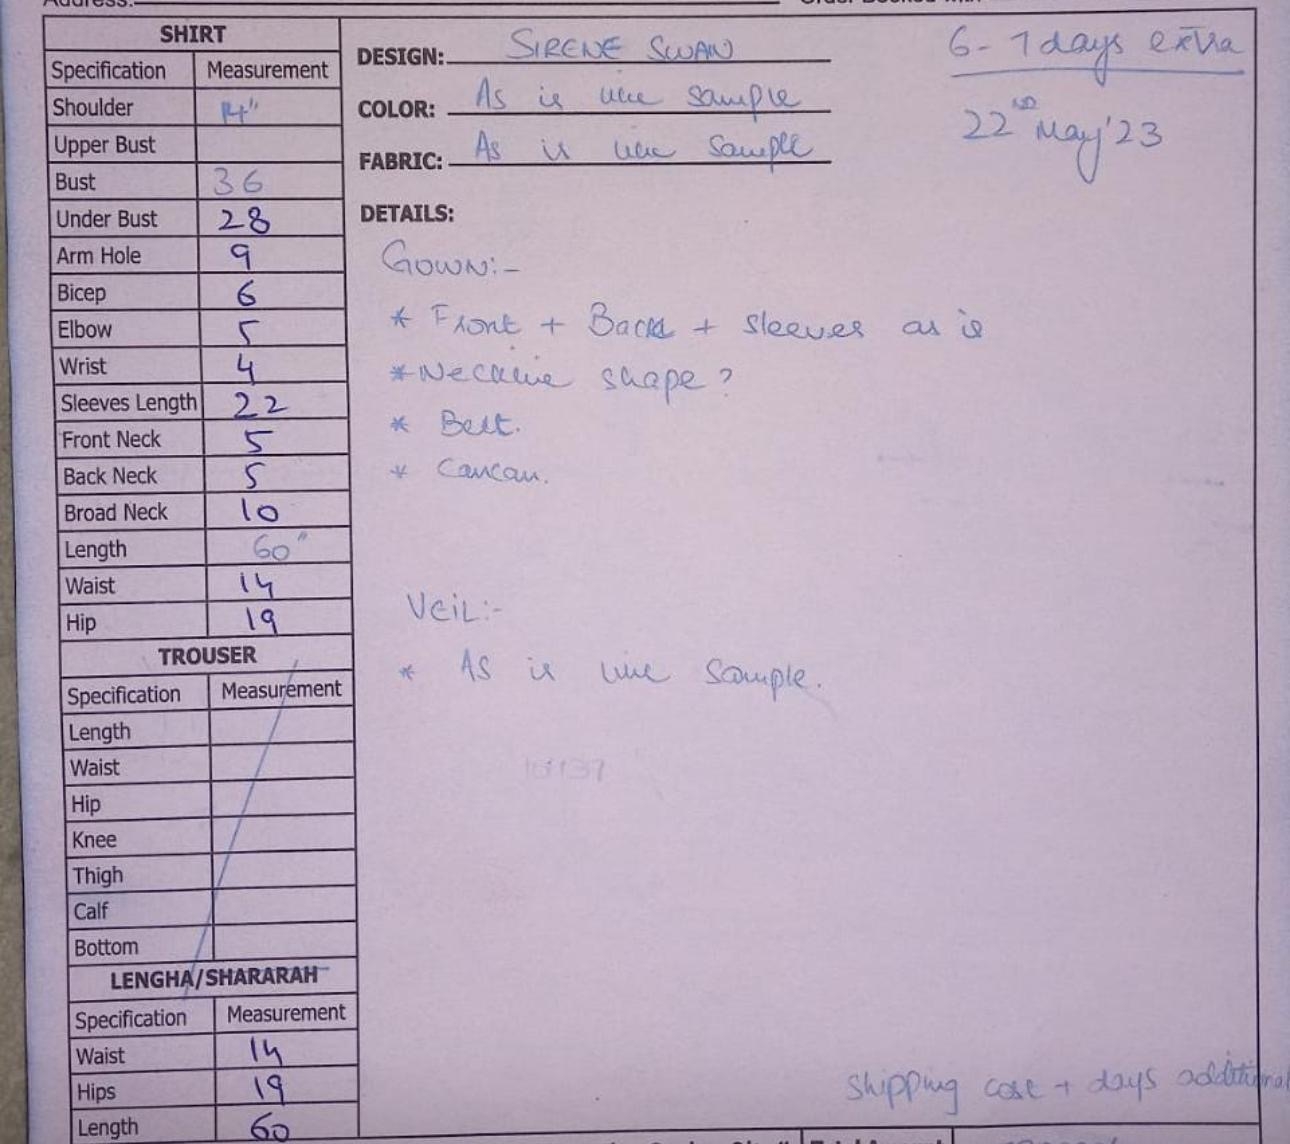 SHIRT
Specification Measurement
Shoulder 14"
Upper Bust
Bust 36
Under Bust 28
Arm Hole 9
Bicep 6
Elbow 5
Wrist 4
Sleeves Length 22
Front Neck 5
Back Neck 5
Broad Neck 10
Length 60"
Waist 14
Hip 19
TROUSER
Specification Measurement
Length
Waist
Hip
Knee
Thigh
Calf
Bottom
LENGHA/SHARARAH
Specification Measurement
Waist 14
Hips 19
Length 60
DESIGN: SIRENE SWAN
COLOR: As is like sample
FABRIC: As is like sample
6-7 days extra
22nd May'23
DETAILS:
Gown:-
* Front + Back + sleeves as is
* Neckline shape?
* Belt.
* Cancan.
VEIL:-
* As is like sample.
shipping cost + days additional